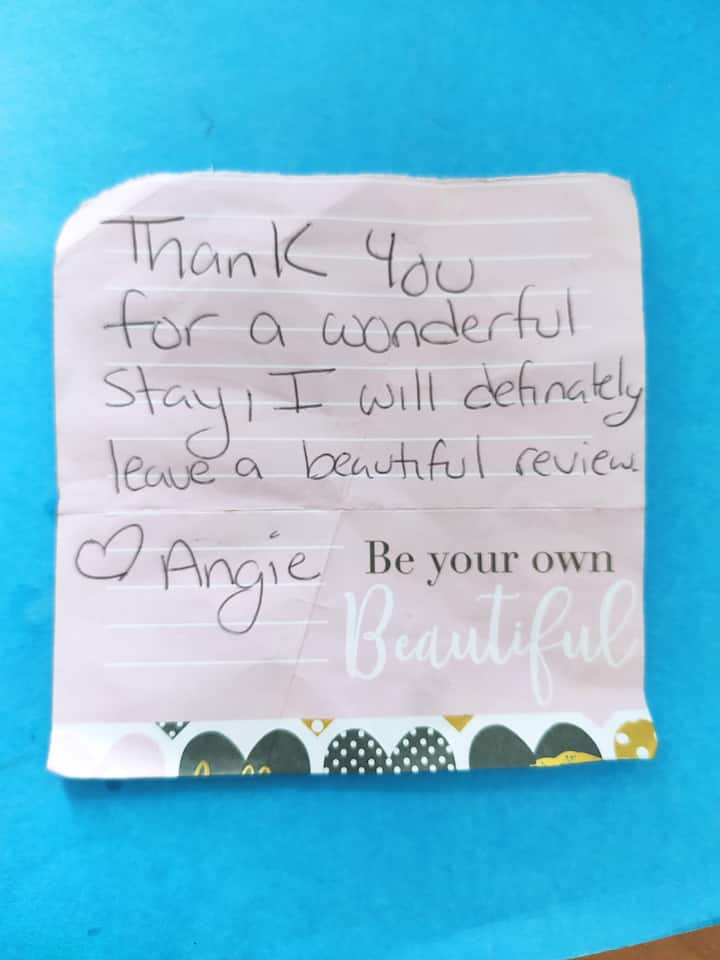 Thank You
for a wonderful
Stay, I will definately
leave a beautiful review.
♡ Angie
Be your own
Beautiful